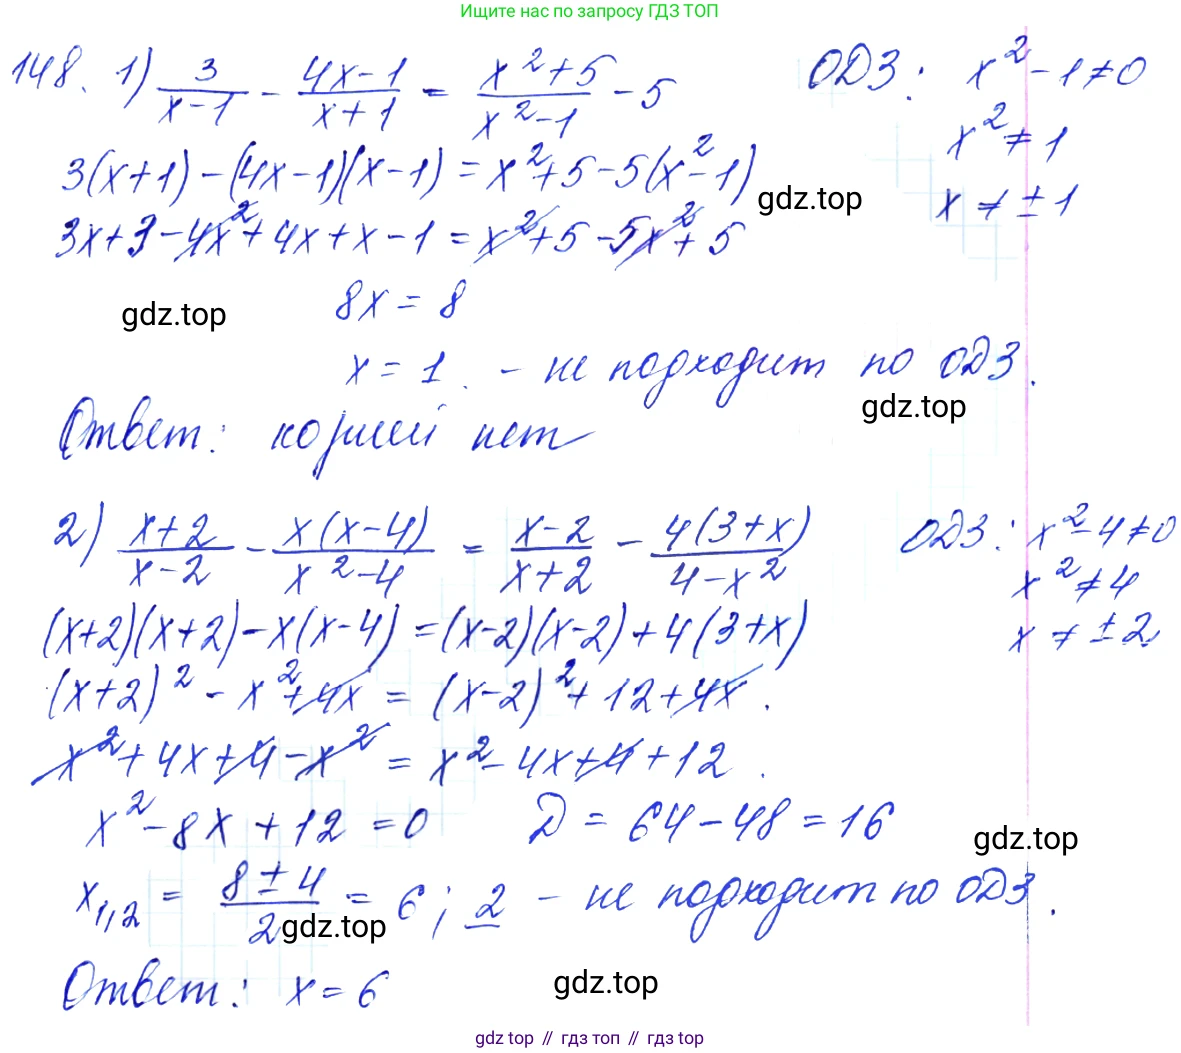 Ищите нас по запросу ГДЗ ТОП
148. 1) 3/(x-1) - (4x-1)/(x+1) = (x²+5)/(x²-1) - 5 ОДЗ: x²-1≠0
x²≠1
3(x+1)-(4x-1)(x-1)=x²+5-5(x²-1)
gdz.top
x≠±1
3x+3-4x²+4x+x-1=x²+5-5x²+5
8x=8
gdz.top
x=1. - не подходит по ОДЗ.
gdz.top
Ответ: корней нет
2) (x+2)/(x-2) - x(x-4)/(x²-4) = (x-2)/(x+2) - 4(3+x)/(4-x²) ОДЗ: x²-4≠0
x²≠4
(x+2)(x+2)-x(x-4)=(x-2)(x-2)+4(3+x)
x≠±2
(x+2)²-x²+4x=(x-2)²+12+4x.
x²+4x+4-x²=x²-4x+4+12.
x²-8x+12=0 D=64-48=16
gdz.top
x₁,₂ = (8±4)/2 = 6; 2 - не подходит по ОДЗ.
gdz.top
Ответ: x=6
gdz.top
gdz top // гдз топ // gdz top